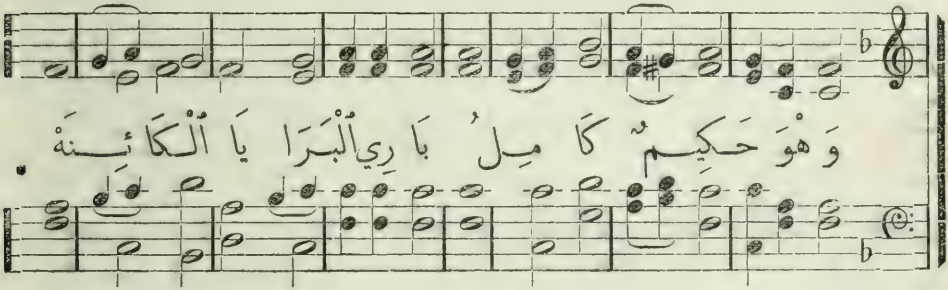 وَ هْوَ حَـكِيـمٌ كَا مِـلُ بَا رِي ٱلْبَـرَا يَا ٱلْـكَا ئِـنَهْ